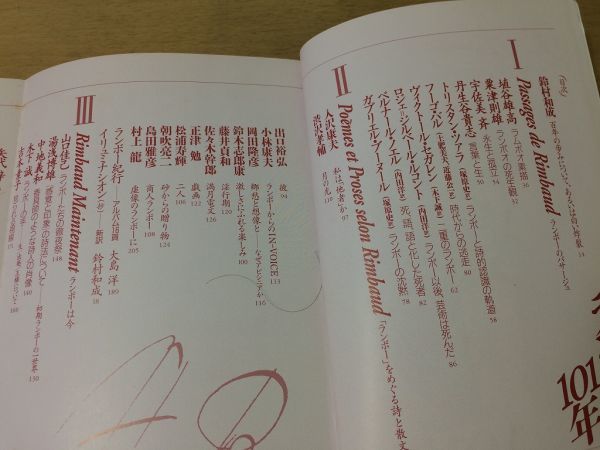 〈目次〉
鈴村和成
14
I Passages de Rimbaud ランボーのパサージュ
埴谷雄高 ランボオ素描 32
粟津則雄 ランボオの死生観
宇佐美 斉 先生と孤立 54
丹生谷貴志 言葉と生 50
トリスタン・ツァラ〈塚原史訳〉 ランボーと詩的認識の軌道 58
フーゴ・バル〈土肥美夫、近藤公一訳〉 時代からの逃走 80
ヴィクトール・セガレン〈木下誠訳〉 二重のランボー 62
ロジェ・ジルベール・ルコント〈内田洋訳〉 ランボー以後、芸術は死んだ 86
ベルナール・ノエル〈内田洋訳〉 死、語、語と化した死者 82
ガブリエル・ブーヌール〈塚原史訳〉 ランボーの沈黙 78
II Poèmes et Proses selon Rimbaud 「ランボー」をめぐる詩と散文
入沢康夫 私は「他者」か 97
渋沢孝輔 月の丸 110
出口裕弘 彼 94
小林康夫 ランボーからの IN-VOICE 113
岡田隆彦 郷愁と想像と――なぜアビシニアか 116
鈴木志郎康 激しさにふれる楽しみ 100
藤井貞和 淫行期 120
佐々木幹郎 満月電文 126
正津 勉 戯画 122
松浦寿輝 二人 106
朝吹亮二 砂からの贈り物 124
島田雅彦 商人ランボー 108
村上 龍 虚像のランボーに 205
ランボー紀行――アルバム16頁 大島 洋 189
イリュミナシオン(抄)――新訳 鈴村和成 18
III Rimbaud Maintenant ランボーは今
山口佳己 ランボーたちの徹夜祭 148
湯浅博雄 「感覚」と「印象」の詩法について――初期ランボーの一世界 130
中地義和 「道負師」のような詩人の肖像 140
木下 誠
101年